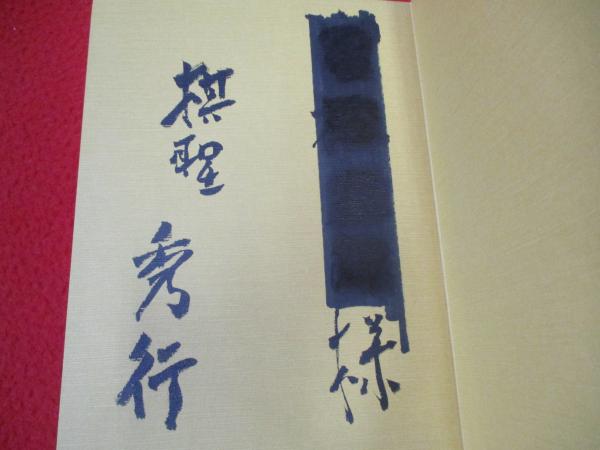 様
棋聖
秀行